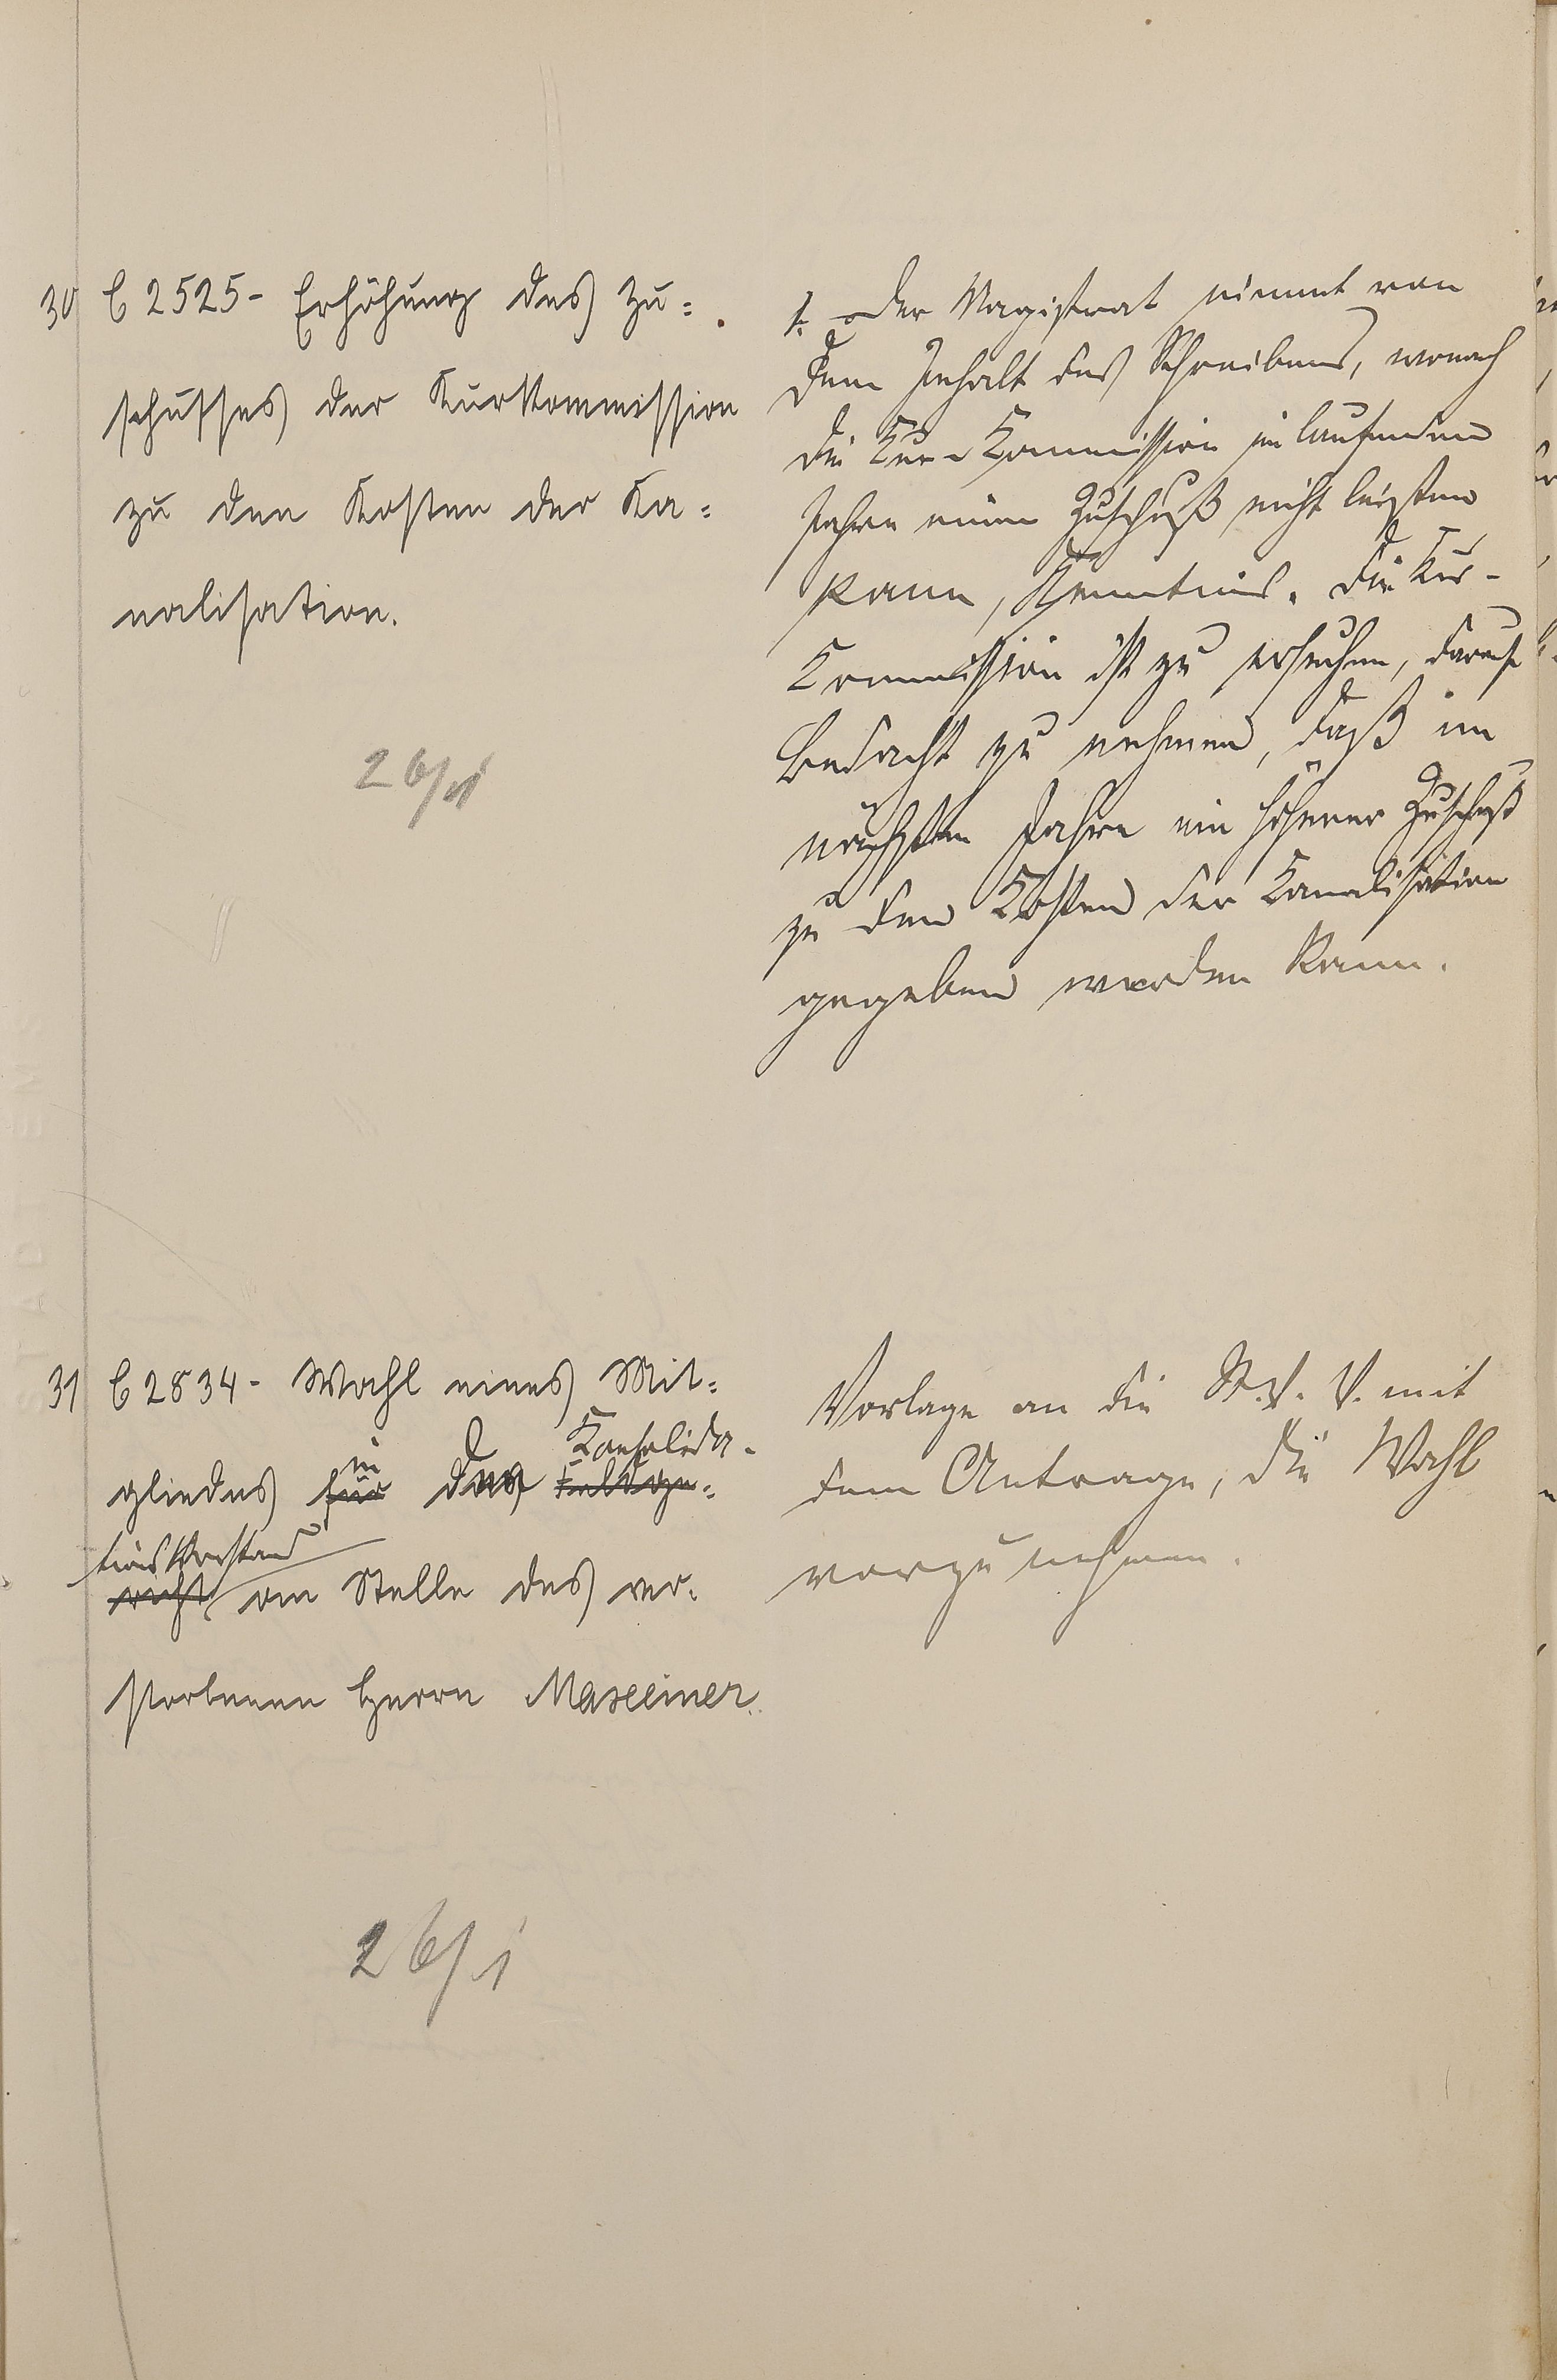 30 C 2525- Erhöhung des Zu=
schusses der Kurkommission
zu den Kosten der Ka=
nalisation.
26/1
1. Der Magistrat nimmt von
dem Inhalt des Schreibens, wonach
die Kur-Kommission im laufenden
Jahre einen Zuschuß nicht leisten
kann, Kenntnis. Die Kur-
Kommission ist zu ersuchen, darauf
Bedacht zu nehmen, daß im
nächsten Jahre ein höherer Zuschuß
zu den Kosten der Kanalisation
gegeben werden kann.
31 C 2834- Wahl eines Mit=
in Konsolida-
gliedes für den Feldge=
tionsvorstand
richt an Stelle des ver-
storbenen Herrn Maxeiner.
26/1
Vorlage an die St. V. V. mit
dem Antrage, die Wahl
vorzunehmen.